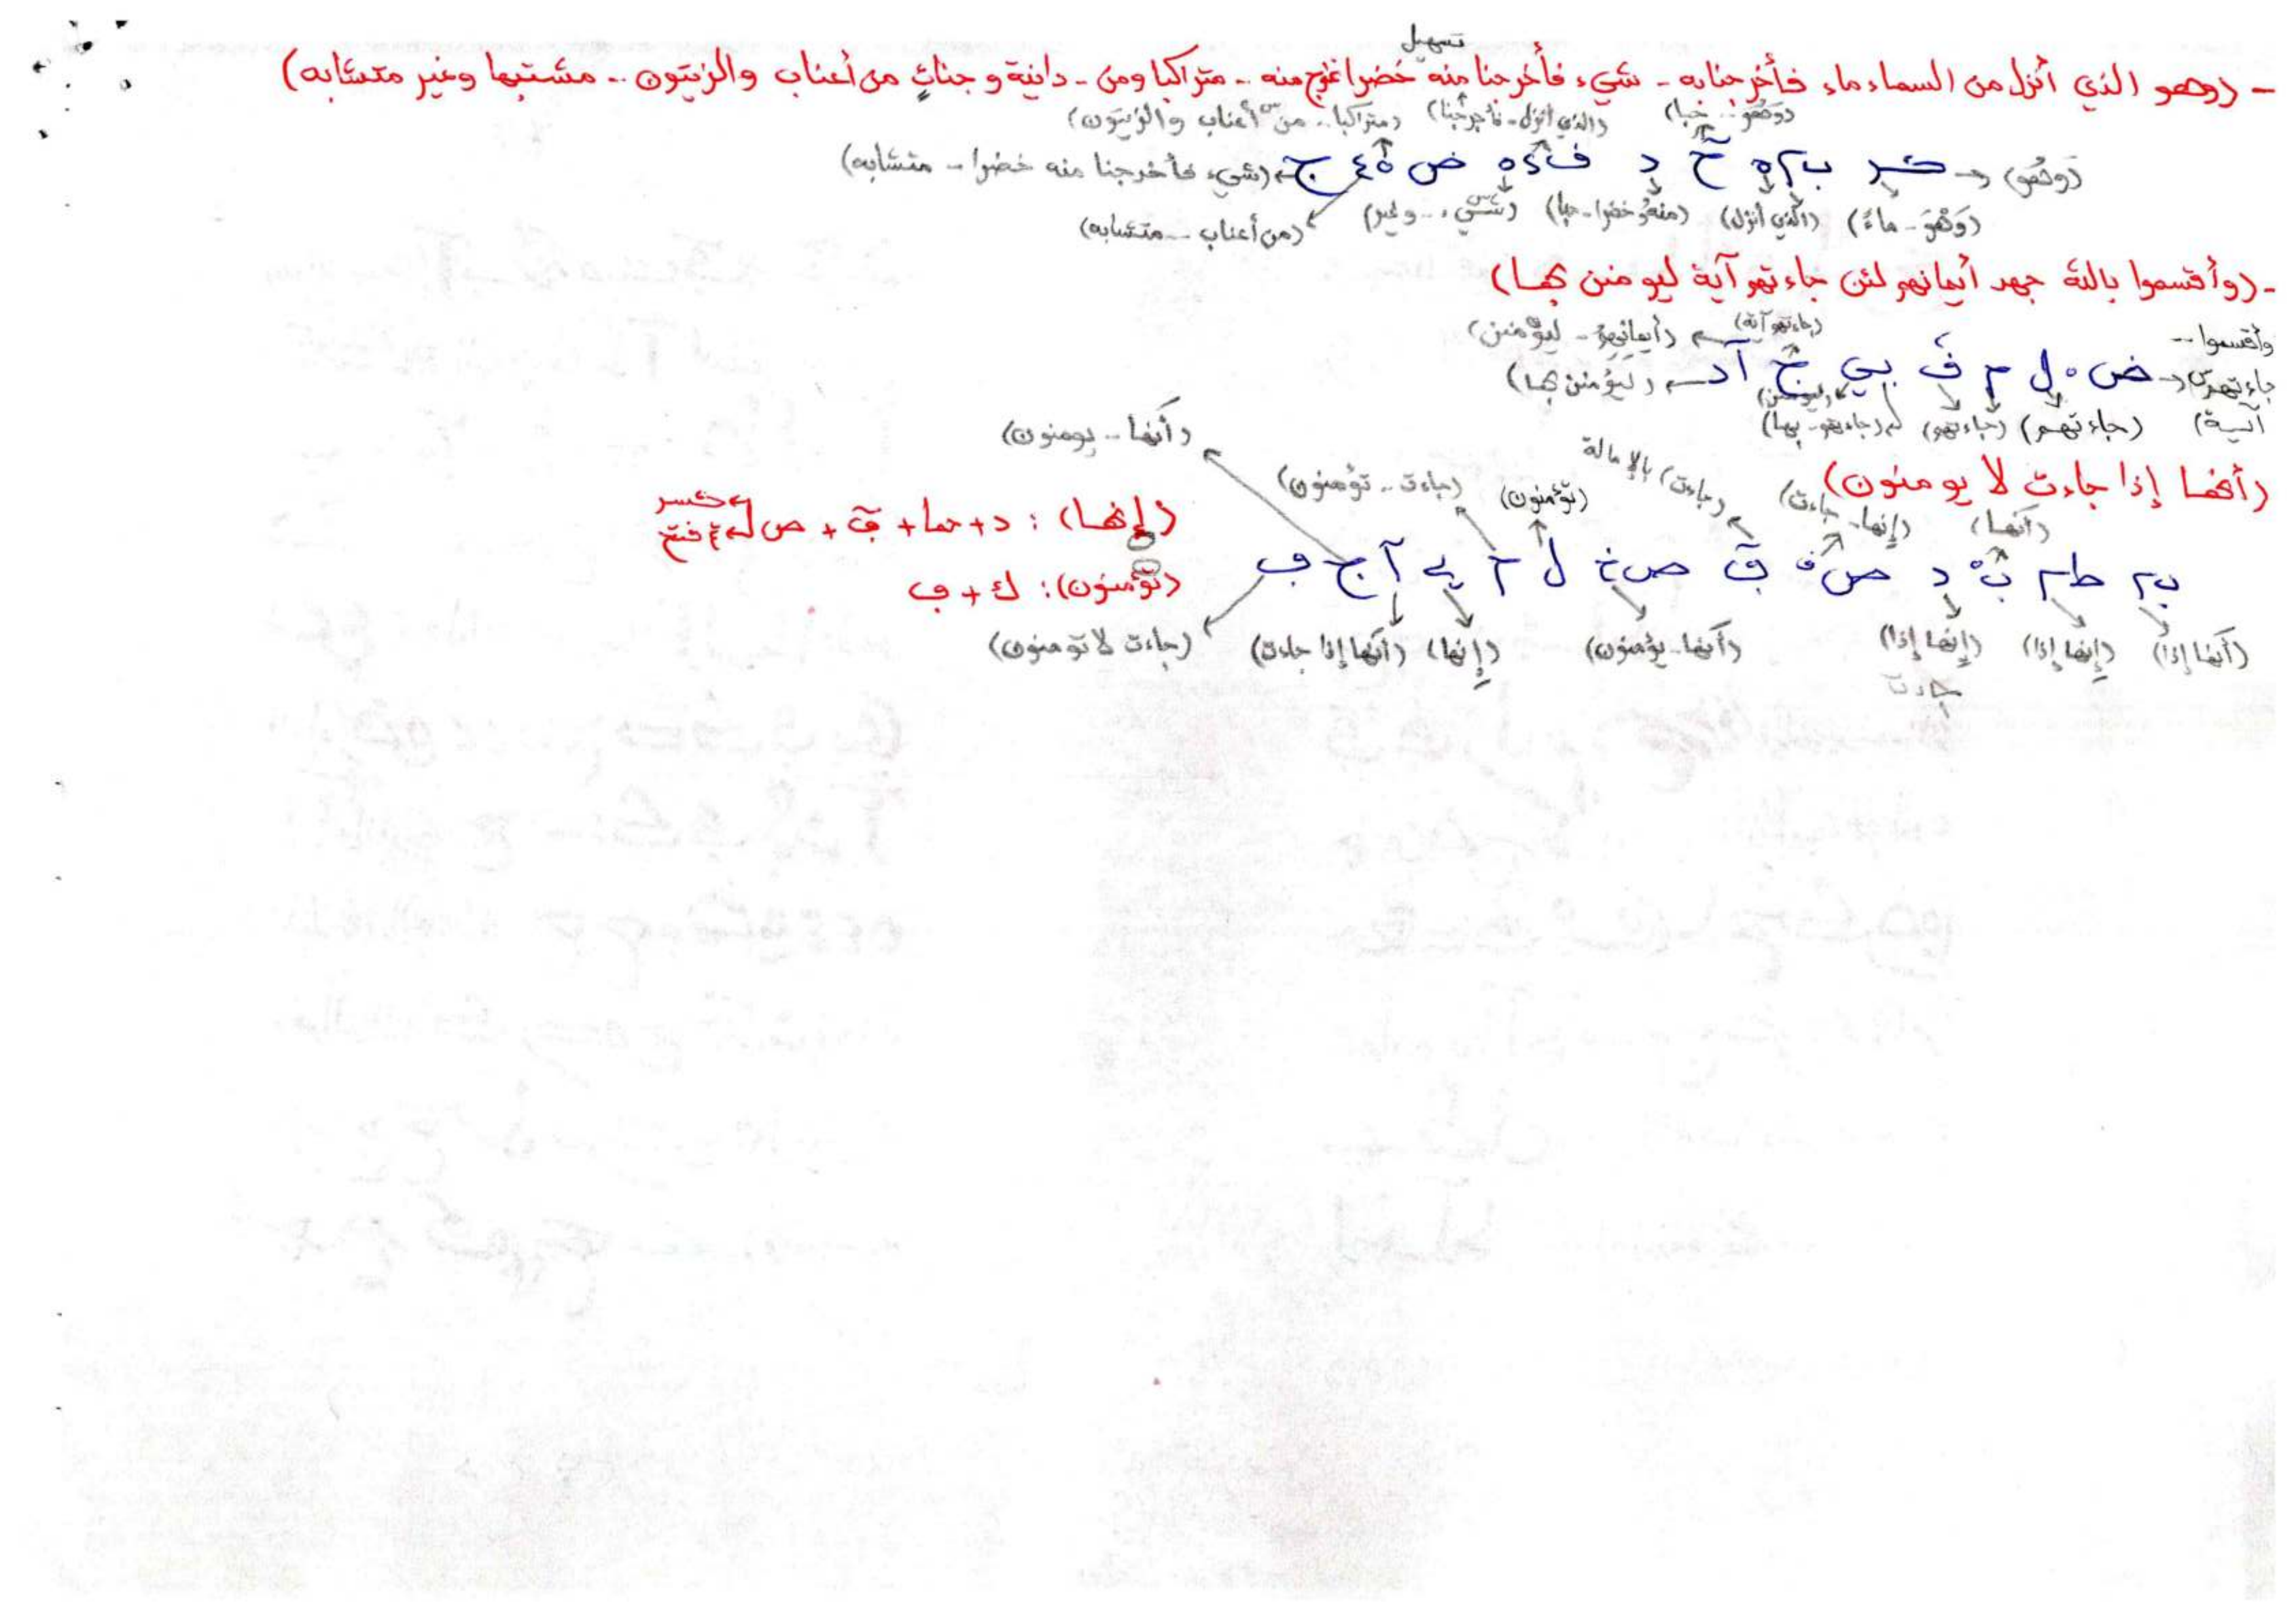 - (وهو الذي أنزل من السماء ماء فأخرجنا به - شيء فأخرجنا منه خضرا نخرج منه .. متراكبا ومن - دانية وجنات من أعناب والزيتون .. مشتبها وغير متشابه)
تسهيل
(وهو .. حبا) (الذي أنزل - فأخرجنا) (متراكبا .. من أعناب والزيتون)
(وهو) د ض ج (شيء فأخرجنا منه خضرا - متشابه)
(وهو - ماء) (الذي أنزل) (منه خضرا - حبا) (شيء .. وغير) (من أعناب .. متشابه)
- (وأقسموا بالله جهد أيمانهم لئن جاءتهم آية ليومنن بها)
(جاءتهم آية) (أيمانهم - ليؤمنن)
وأقسموا .. جاءتهم آية) ض ل م ف (ليؤمنن بها)
(جاءتهم) (جاءتهم) (جاءتهو - بها) (ليومنن)
(أنها إذا جاءت لا يومنون)
(أنها) (إنها - جاءت) (جاءت) بالإمالة (تؤمنون) (جاءت .. تؤمنون) (أنها .. يومنون)
(إنها) : د + حما + ف + ص
(تؤمنون) : ك + ف
د ص ل م ج ف
(أنها إذا) (إنها إذا) (إنها إذا جاءت) (أنها - يؤمنون) (إنها) (أنها إذا جاءت) (جاءت لا تومنون)